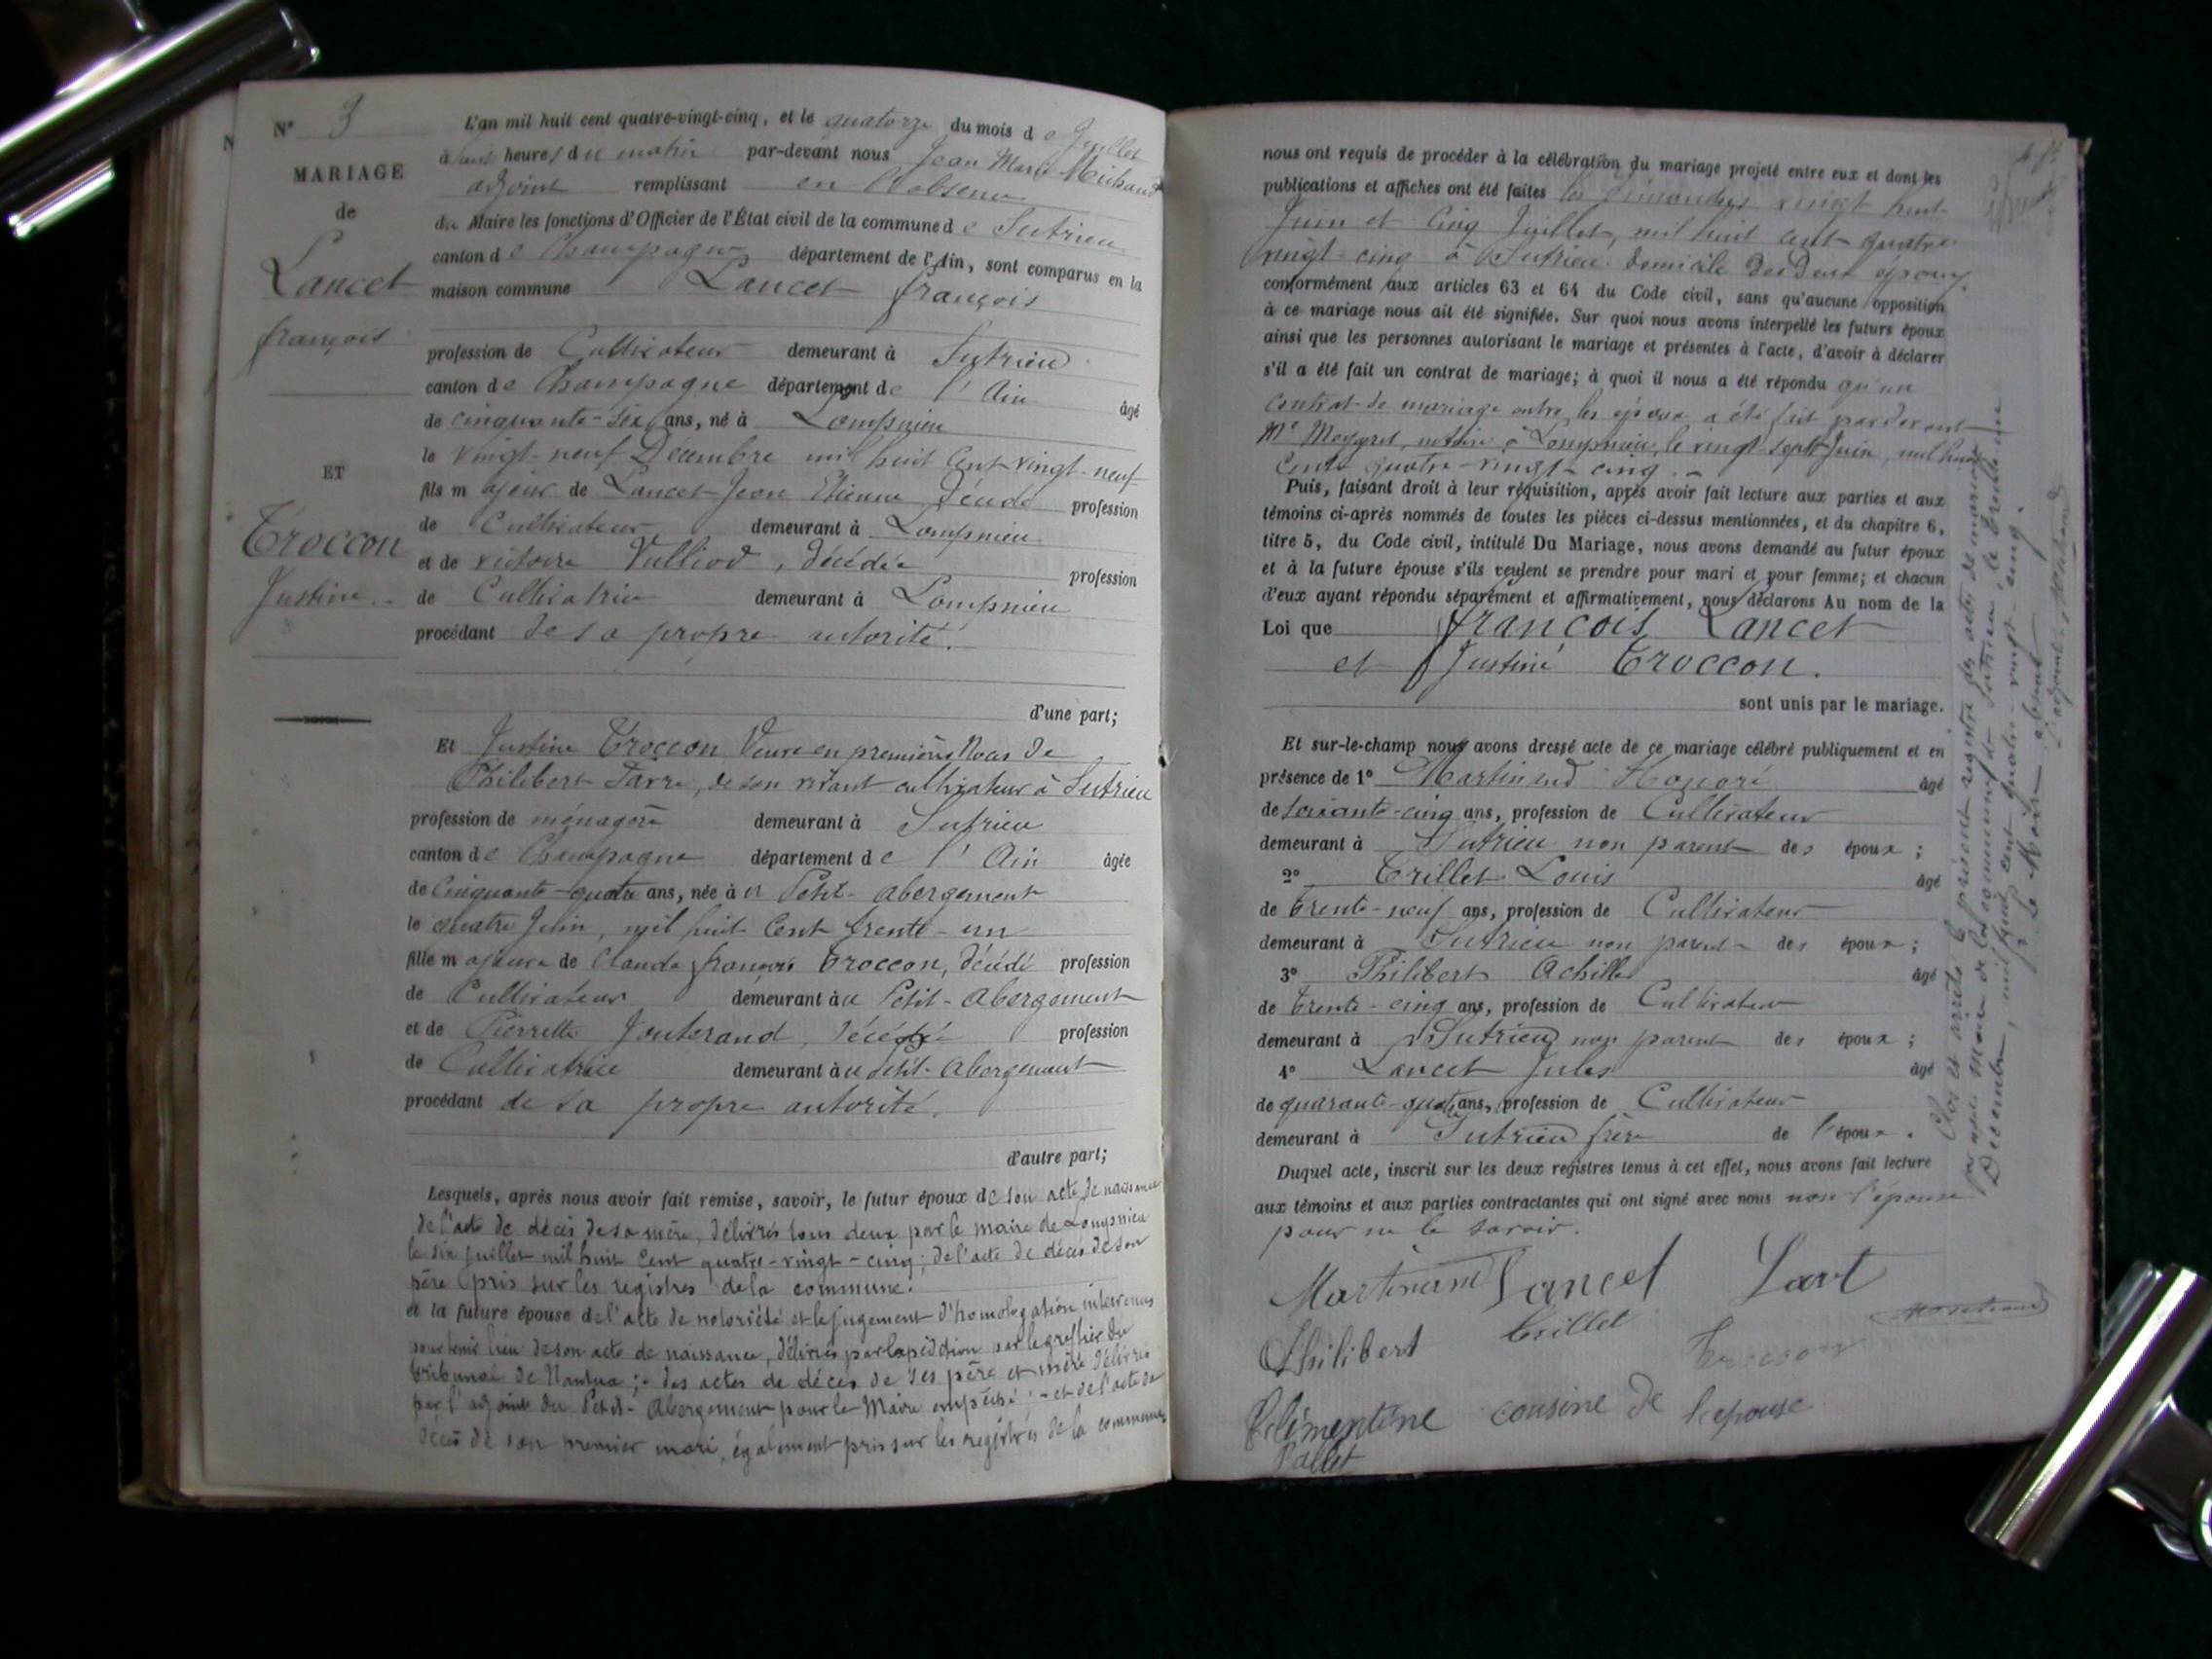 N° 3
MARIAGE
de
Lancet
françois
ET
Troccon
Justine
L'an mil huit cent quatre-vingt-cinq, et le quatorze du mois de Juillet
à huit heures du matin par-devant nous Jean Marie Michaud
adjoint remplissant en l'absence
du Maire les fonctions d'Officier de l'État civil de la commune de Sutrieu
canton de Champagne département de l'Ain, sont comparus en la
maison commune Lancet françois
profession de Cultivateur demeurant à Sutrieu
canton de Champagne département de l'Ain âgé
de cinquante-six ans, né à Lompnieu
le vingt-neuf Décembre mil huit Cent vingt-neuf
fils majeur de Lancet Jean Etienne Décédé profession
de Cultivateur demeurant à Lompnieu
et de victoire Vulliod, décédée profession
de Cultivatrice demeurant à Lompnieu
procédant de sa propre autorité.
d'une part;
Et Justine Troccon Veuve en premières Noces de
Philibert Jarre, de son vivant cultivateur à Sutrieu
profession de ménagère demeurant à Sutrieu
canton de Champagne département de l'Ain âgée
de Cinquante-quatre ans, née à u Petit-Abergement
le quatre Juin, mil huit Cent trente-un
fille majeure de Claude françois Troccon, Décédé profession
de Cultivateur demeurant à u Petit-Abergement
et de Pierrette Jouterand, décédée profession
de Cultivatrice demeurant à u Petit-Abergement
procédant de sa propre autorité.
d'autre part;
Lesquels, après nous avoir fait remise, savoir, le futur époux de son acte de naissance
de l'acte de décès de sa mère, délivrés tous deux par le maire de Lompnieu
le six juillet mil huit cent quatre-vingt-cinq; de l'acte de décès de son
père pris sur les registres de la commune.
et la future épouse de l'acte de notoriété et le jugement d'homologation intervenus
pour tenir lieu de son acte de naissance, délivrés par expédition par le greffier du
tribunal de Nantua; des actes de décès de ses père et mère délivrés
par l'adjoint du Petit-Abergement pour le Maire empêché; et de l'acte de
décès de son premier mari, également pris sur les registres de la commune
nous ont requis de procéder à la célébration du mariage projeté entre eux et dont les
publications et affiches ont été faites les dimanches vingt huit
Juin et Cinq Juillet, mil huit cent quatre
vingt-cinq à Sutrieu domicile des Deux époux.
conformément aux articles 63 et 64 du Code civil, sans qu'aucune opposition
à ce mariage nous ait été signifiée. Sur quoi nous avons interpellé les futurs époux
ainsi que les personnes autorisant le mariage et présentes à l'acte, d'avoir à déclarer
s'il a été fait un contrat de mariage; à quoi il nous a été répondu qu'un
contrat de mariage entre les époux a été fait par devant
Me Meygret, notaire à Lompnieu, le vingt-sept Juin, mil huit
Cent quatre-vingt-cinq.
Puis, faisant droit à leur réquisition, après avoir fait lecture aux parties et aux
témoins ci-après nommés de toutes les pièces ci-dessus mentionnées, et du chapitre 6,
titre 5, du Code civil, intitulé Du Mariage, nous avons demandé au futur époux
et à la future épouse s'ils veulent se prendre pour mari et pour femme; et chacun
d'eux ayant répondu séparément et affirmativement, nous déclarons Au nom de la
Loi que françois Lancet
et Justine Troccon.
sont unis par le mariage.
Et sur-le-champ nous avons dressé acte de ce mariage célébré publiquement et en
présence de 1° Martinand Honoré âgé
de soixante-cinq ans, profession de Cultivateur
demeurant à Sutrieu non parent des époux;
2° Trillet Louis âgé
de trente-neuf ans, profession de Cultivateur
demeurant à Sutrieu non parent des époux;
3° Philibert Achille âgé
de trente-cinq ans, profession de Cultivateur
demeurant à Sutrieu non parent des époux;
4° Lancet Jules âgé
de quarante-quatre ans, profession de Cultivateur
demeurant à Sutrieu frère de l'époux.
Duquel acte, inscrit sur les deux registres tenus à cet effet, nous avons fait lecture
aux témoins et aux parties contractantes qui ont signé avec nous non l'épouse
pour ne le savoir.
Martinand Lancet
Philibert Trillet Troccon
Clémentine cousine de l'epouse
Pallet
Clos et arrêté le présent registre des actes de mariage
par nous Maire de la commune de Sutrieu, le trente-un
Décembre, mil huit cent quatre-vingt-cinq.
Pr le Maire absent
L'adjoint, Michaud